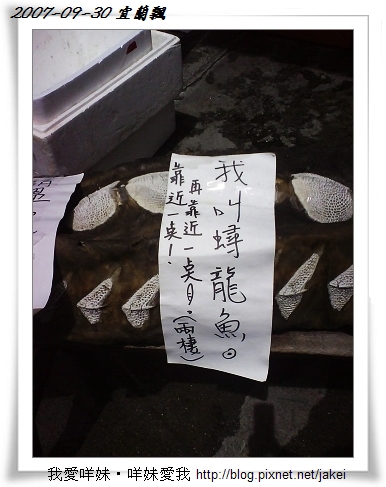 2007-09-30 宜蘭飄
我叫蟳龍魚。
再靠近一點目.(兩棲)
靠近一点!.
我愛咩妹‧咩妹愛我 http://blog.pixnet.net/jakei